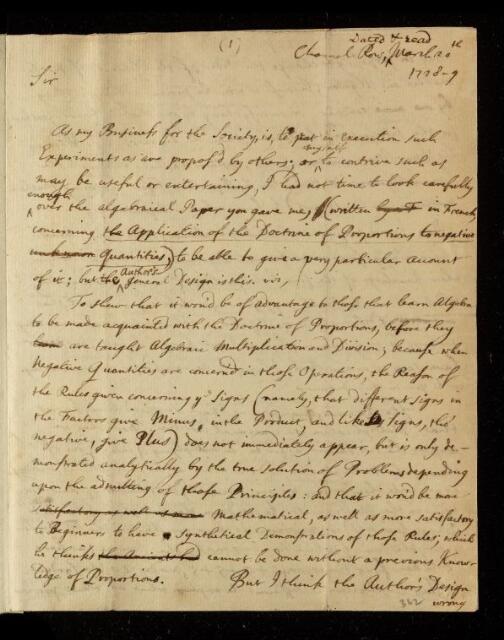 (1)
Dated & read
Channel Row, March 20th
1728-9
Sir
As my Business for the Society, is, to put in execution such
myself
Experiments as are propos'd by others; or to contrive such as
may be useful or entertaining, I had not time to look carefully
enough
over the algebraical Paper you gave me, (written in French,
concerning the Application of the Doctrine of Proportions to negative
unknown Quantities) to be able to give a very particular Account
Author's
of it; but the general Design is this. viz,
To shew that it would be of advantage to those that learn Algebra
to be made acquainted with the Doctrine of Proportions, before they
are taught Algebraic Multiplication and Division; because when
Negative Quantities are concern'd in those Operations, the Reason of
the Rules given concerning ye Signs (namely, that different signs in
the Factors give Minus, in the Product, and like Signs, tho'
negative, give Plus) does not immediately appear, but is only de-
monstrated analytically by the true solution of Problems depending
upon the admitting of those Principles: and that it would be more
satisfactory as well as more Mathematical, as well as more satisfactory
to Beginners to have synthetical Demonstrations of those Rules; which
he thinks cannot be done without a previous Know-
ledge of Proportions. But I think the Author's Design
362 wrong